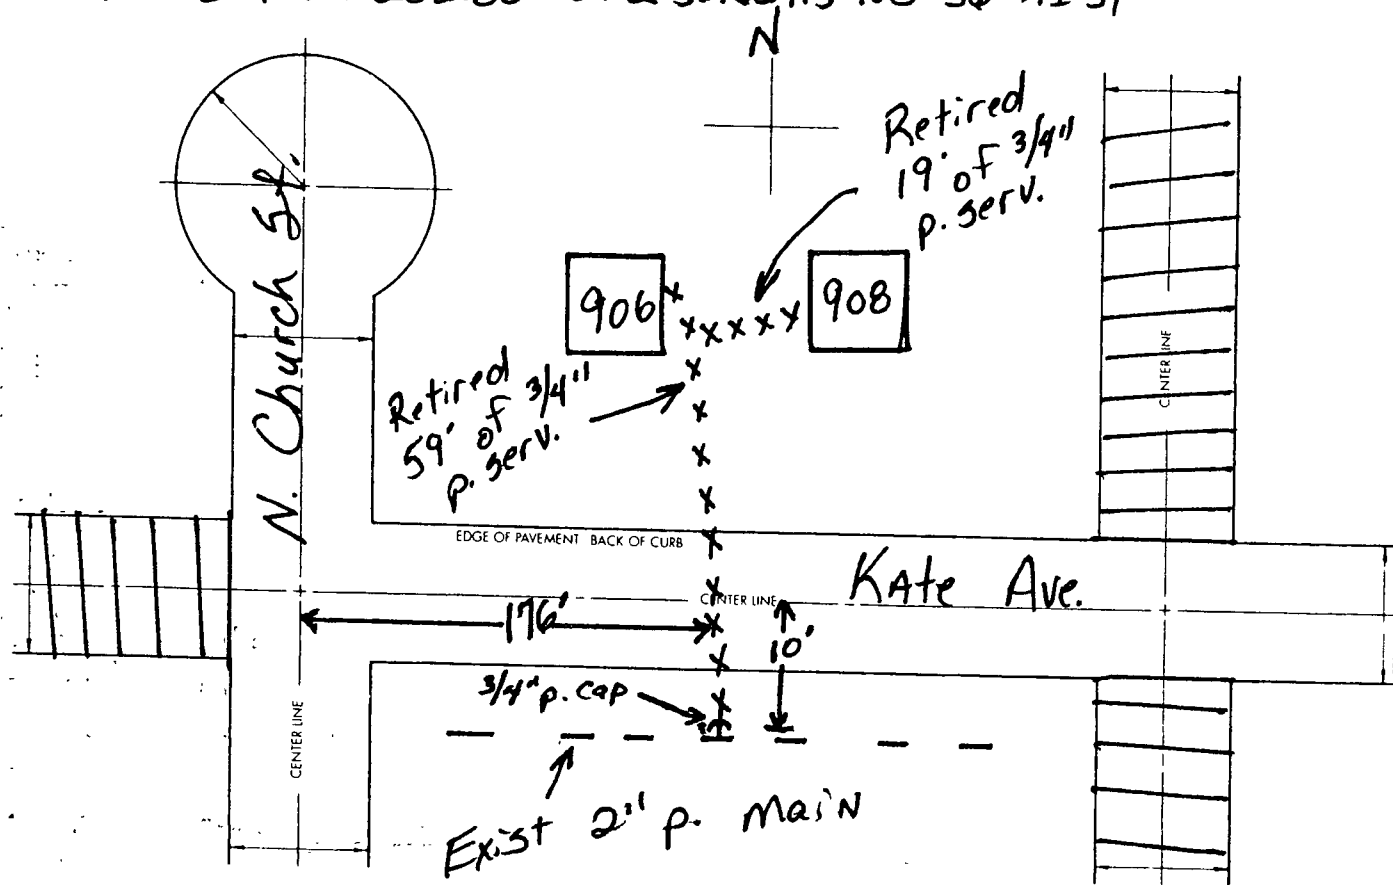 N
Retired
19' of 3/4"
p. serv.
N. Church St.
906
908
Retired
59' of 3/4"
p. serv.
CENTER LINE
EDGE OF PAVEMENT BACK OF CURB
Kate Ave.
CENTER LINE
176'
10'
3/4" p. cap
CENTER LINE
Exist 2" p. Main